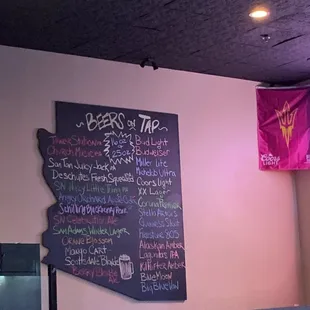 BEERS on TAP
16oz
25oz
Church Music
San Tan Juicy Jack
Deschutes Fresh Squeezed
SN Hazy Little Thing
Schilling
SN Celebration Ale
Sam Adams Winter Lager
Orange Blossom
Mango Cart
Scottsdale Blonde
Bud Light
Budweiser
Miller Lite
Michelob Ultra
Coors Light
XX Lager
Corona Premier
Stella Artois
Guinness Stout
Firestone 805
Alaskan Amber
Lagunitas IPA
Kilt Lifter Amber
Blue Moon
Big Blue Van
Coors
LIGHT